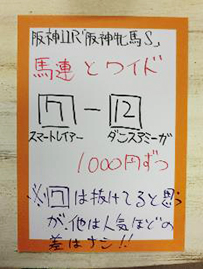 阪神11R「阪神牝馬S」
馬連とワイド
7-12
スマートレイアー ダンスアミーガ
1000円ずつ
※7は抜けてると思う
が、他は人気ほどの
差はナシ!!